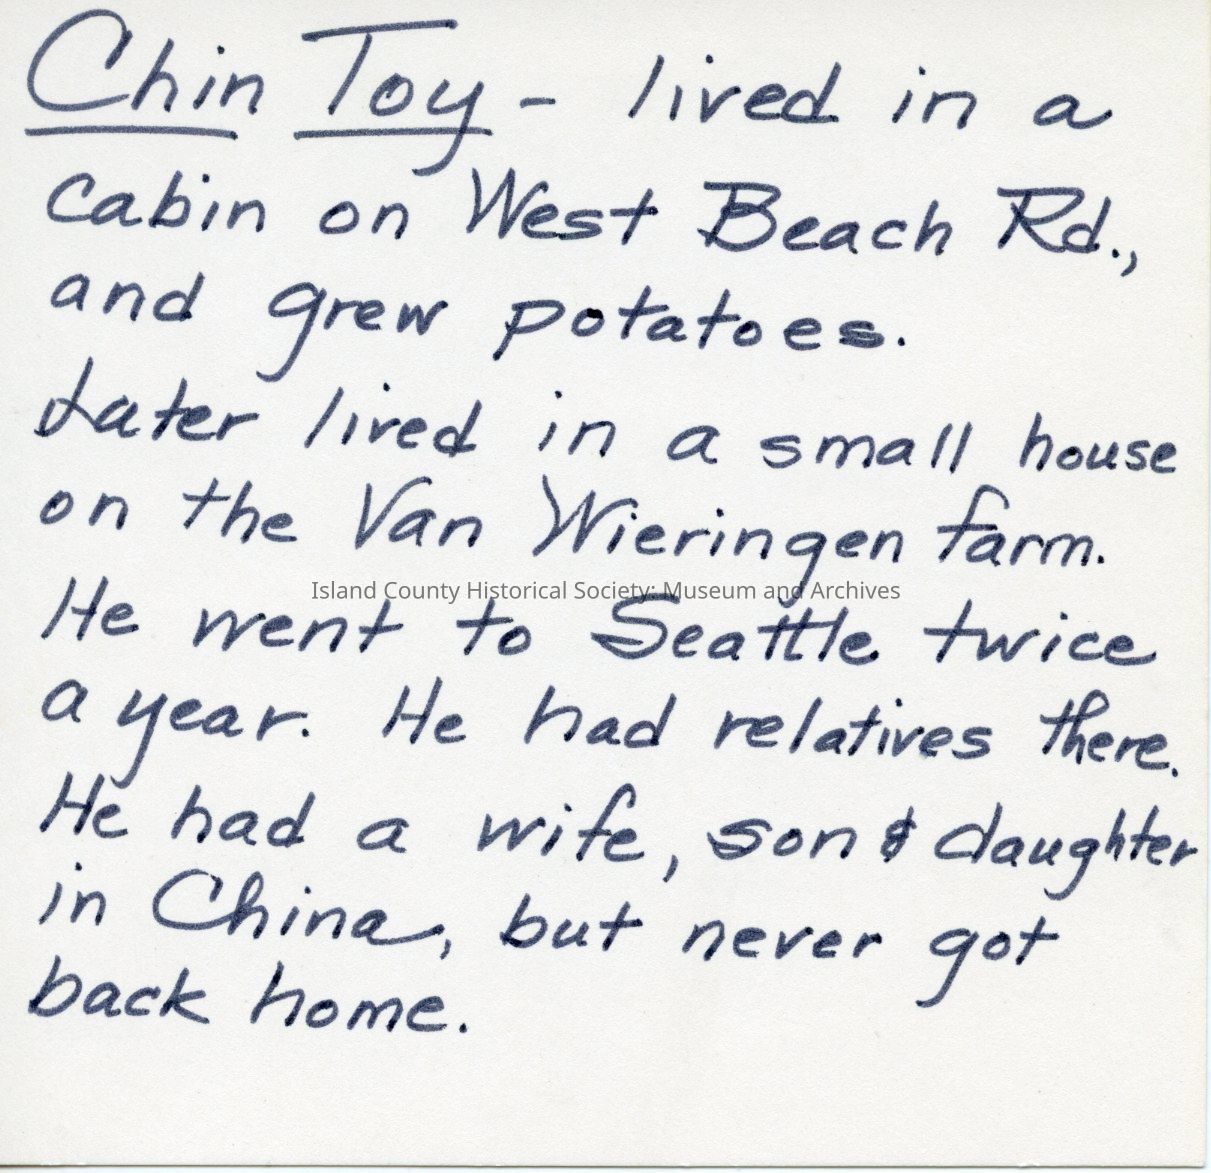 Chin Toy - lived in a
cabin on West Beach Rd.,
and grew potatoes.
Later lived in a small house
on the Van Wieringen farm.
Island County Historical Society: Museum and Archives
He went to Seattle twice
a year. He had relatives there.
He had a wife, son & daughter
in China, but never got
back home.